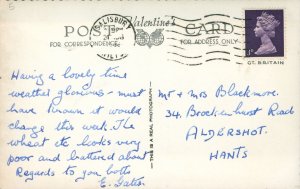 5
SALISBURY
WILTS
POST CARD
Valentine's
FOR CORRESPONDENCE
FOR ADDRESS ONLY
GT. BRITAIN
THIS IS A REAL PHOTOGRAPH
Having a lovely time
weather glorious - must
have known it would
change this week. The
wheat etc looks very
poor and battered about
Regards to you both
E. Gates.
Mr & Mrs Blackmore.
34, Brockenhurst Road
ALDERSHOT.
HANTS